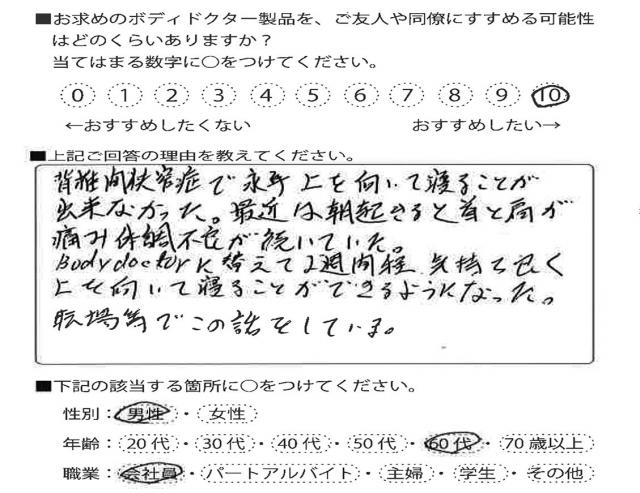 ■お求めのボディドクター製品を、ご友人や同僚にすすめる可能性
はどのくらいありますか？
当てはまる数字に○をつけてください。
0 1 2 3 4 5 6 7 8 9 10
←おすすめしたくない おすすめしたい→
■上記ご回答の理由を教えてください。
脊椎間狭窄症で永年上を向いて寝ることが
出来なかった。最近は朝起きると首と肩が
痛み体調不良が続いていた。
Bodydoctorに替えて2週間程、気持ち良く
上を向いて寝ることができるようになった。
職場等でこの話をしている。
■下記の該当する箇所に○をつけてください。
性別：男性・女性
年齢：20代・30代・40代・50代・60代・70歳以上
職業：会社員・パートアルバイト・主婦・学生・その他